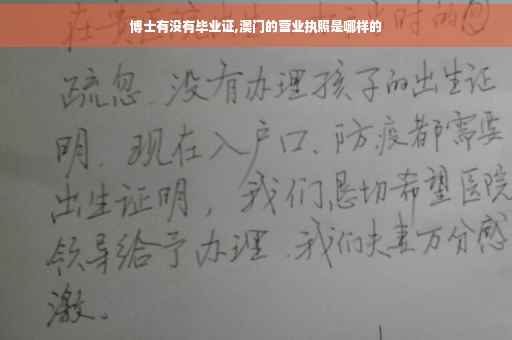 博士有没有毕业证,澳门的营业执照是哪样的
疏忽.没有办理孩子的出生证
明.现在入户口、防疫都需要
出生证明，我们恳切希望医院
领导给予办理.我们夫妻万分感
激。